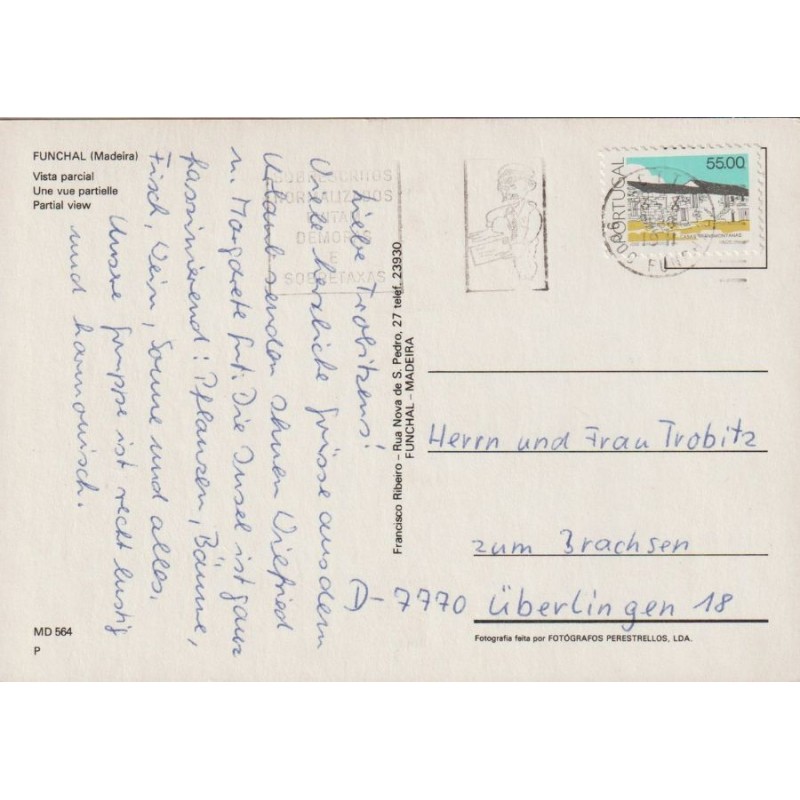 FUNCHAL (Madeira)
Vista parcial
Une vue partielle
Partial view
Liebe Trobitzens!
Viele herzliche Grüsse aus dem
Urlaub senden Ihnen Wilfried
u. Margarete Die Insel ist ganz
faszinierend: Pflanzen, Bäume,
Fisch, Wein, Sonne und alles.
Unsre Gruppe ist recht lustig
und harmonisch.
SOBRESCRITOS
NORMALIZADOS
EVITAM
DEMORAS
E
SOBRETAXAS
PORTUGAL
55.00
CASAS TRANSMONTANAS
Francisco Ribeiro – Rua Nova de S. Pedro, 27 telef. 23930
FUNCHAL – MADEIRA
Herrn und Frau Trobitz
zum Brachsen
D-7770 Überlingen 18
Fotografia feita por FOTÓGRAFOS PERESTRELLOS, LDA.
MD 564
P